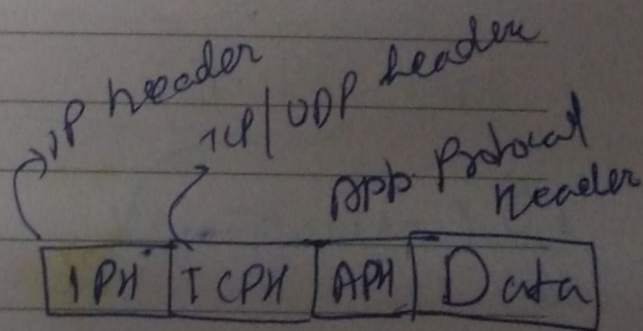 IP header
TCP/UDP header
App Protocal
header
IPH TCPH APH Data